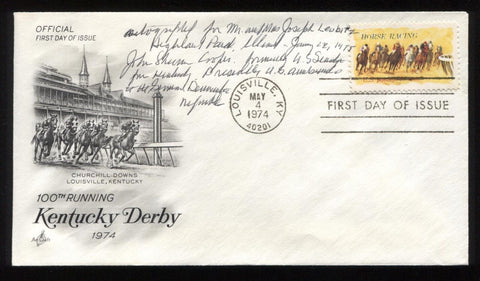 OFFICIAL
FIRST DAY OF ISSUE
autographed for Mr. and Mrs Joseph
Highland Park, Illinois. June 28, 1975
John Sherman Cooper. formerly U.S. Senator
for Kentucky. Presently U.S. ambassador
to German Democratic
Republic
HORSE RACING
LOUISVILLE, KY
MAY
4
1974
40201
FIRST DAY OF ISSUE
CHURCHILL DOWNS
LOUISVILLE, KENTUCKY
100TH RUNNING
Kentucky Derby
1974